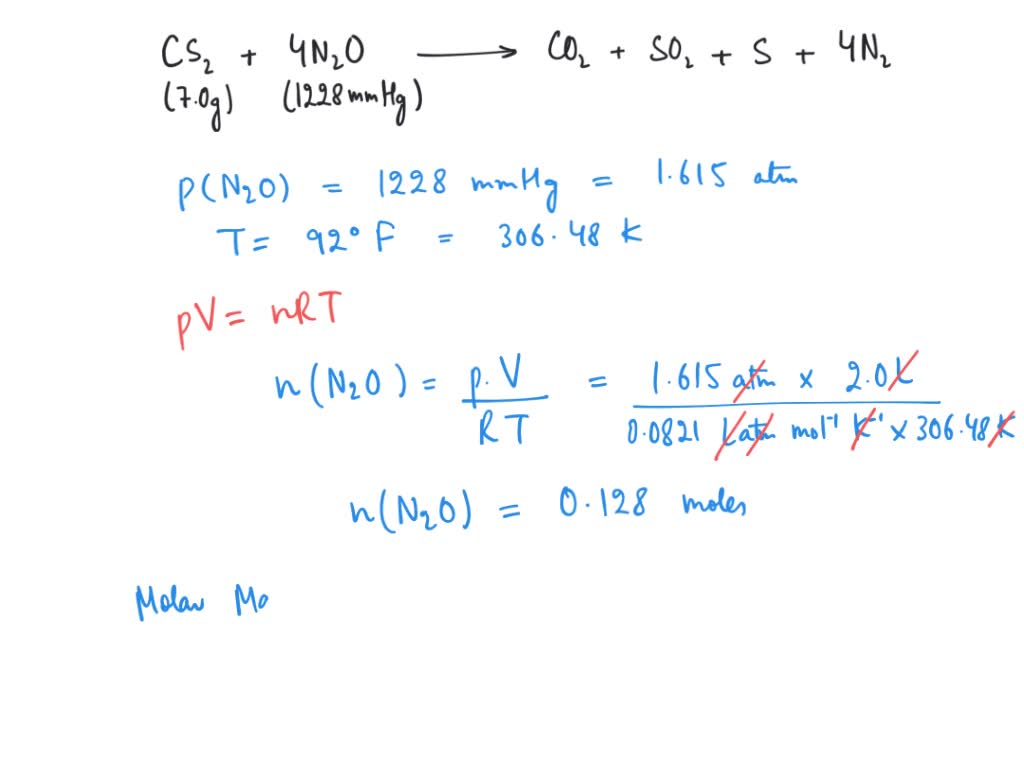 CS₂ + 4N₂O ⟶ CO₂ + SO₂ + S + 4N₂
(7.0g) (1228 mmHg)
p(N₂O) = 1228 mmHg = 1.615 atm
T = 92° F = 306.48 K
pV = nRT
n(N₂O) = p.V / RT = 1.615 atm x 2.0 L / 0.0821 L atm mol⁻¹ K⁻¹ x 306.48 K
n(N₂O) = 0.128 moles
Molar Mo